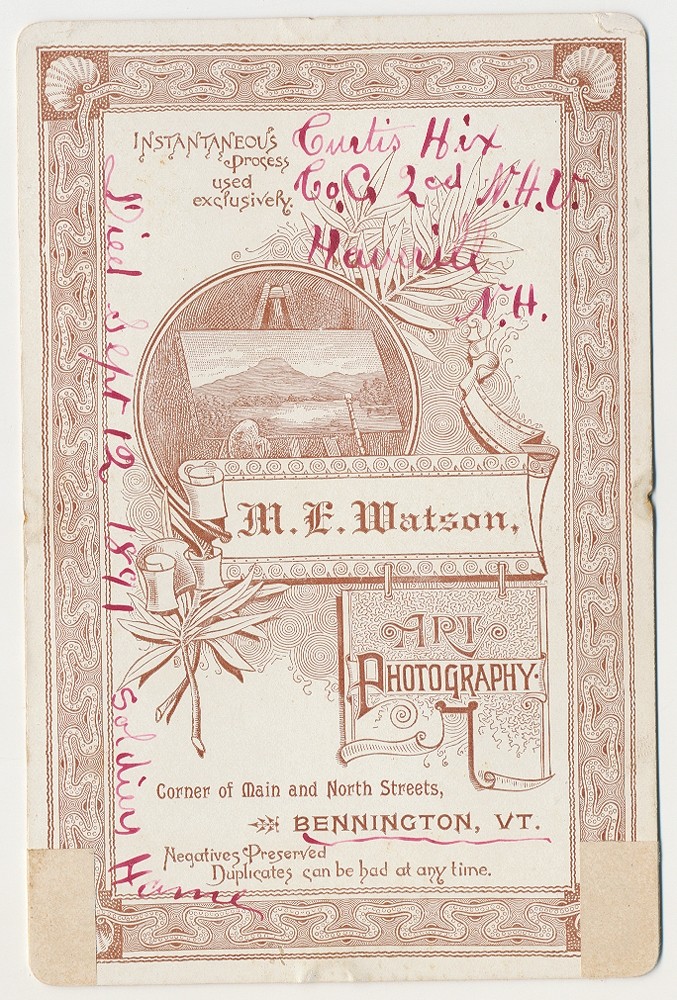 INSTANTANEOUS
Process
used
exclusively.
Curtis Hix
Co. C. 2nd N.H.V.
N.H.
Died Sept 12 1891
Soldiers Home
M. E. Watson,
ART
PHOTOGRAPHY.
Corner of Main and North Streets,
BENNINGTON, VT.
Negatives Preserved
Duplicates can be had at any time.